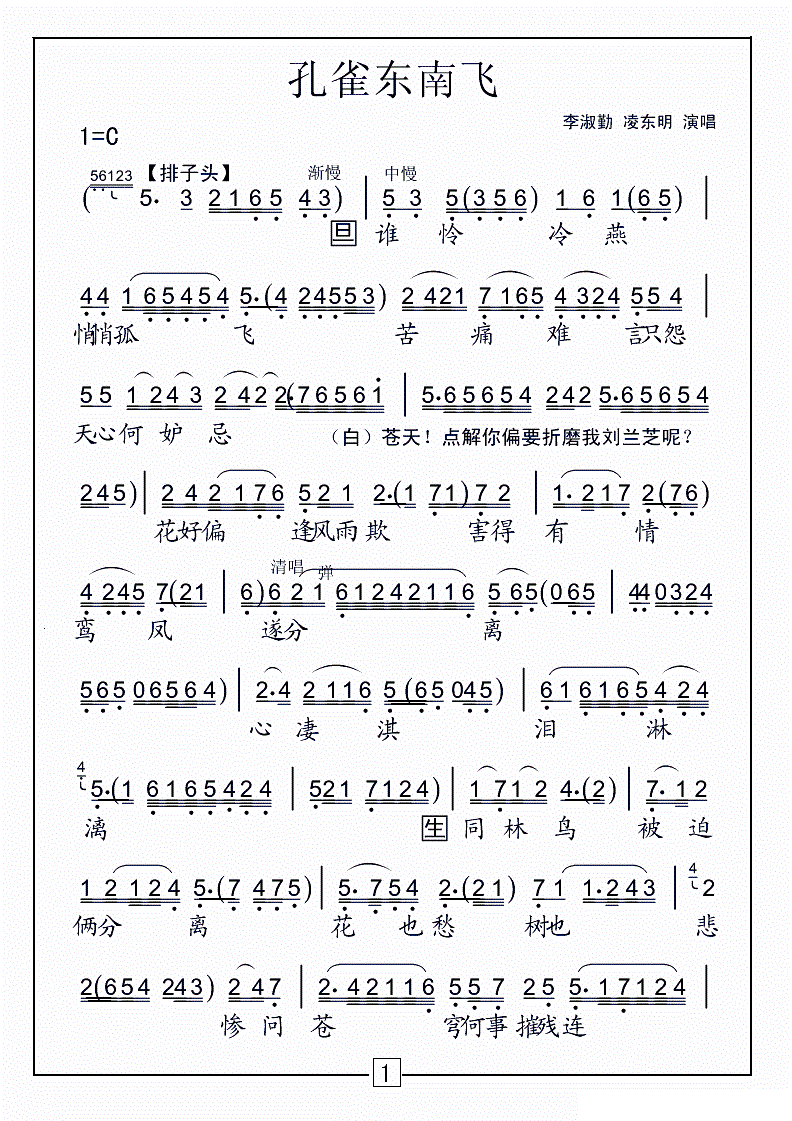 孔雀东南飞
李淑勤 凌东明 演唱
1=C
56123 【排子头】 渐慢 中慢
( 5. 3 2165 43) | 53 5(356) 16 1(65) |
旦 谁怜 冷燕
44 165454 5.(4 24553) 2421 7165 4324 554 |
悄悄孤 飞 苦 痛 难 言只怨
55 1243 2422 2.(76561 | 5.65654 242 5.65654
天心何妒忌 (白)苍天!点解你偏要折磨我刘兰芝呢?
245) | 242176 521 2.(1 71)72 | 1.217 2(76)
花好偏 逢风雨欺 害得有情
清唱 弹
4245 7(21 | 6)621 61242116 565(065 | 440324
鸾 凤 遂分 离
56506564) | 2.4 2116 5(65 045) | 61 6165424
心凄淇 泪 淋
4
5.(1 6165424 | 521 7124) | 1712 4.(2) | 7.12
漓 生 同林鸟 被迫
4
12124 5.(7 475) | 5.754 2.(21) 71 1.243 | 2
俩分 离 花 也愁 树也 悲
2(654 243) 247 | 2.42116 557 25 5.17124 |
惨问苍 穹何事摧残连
1